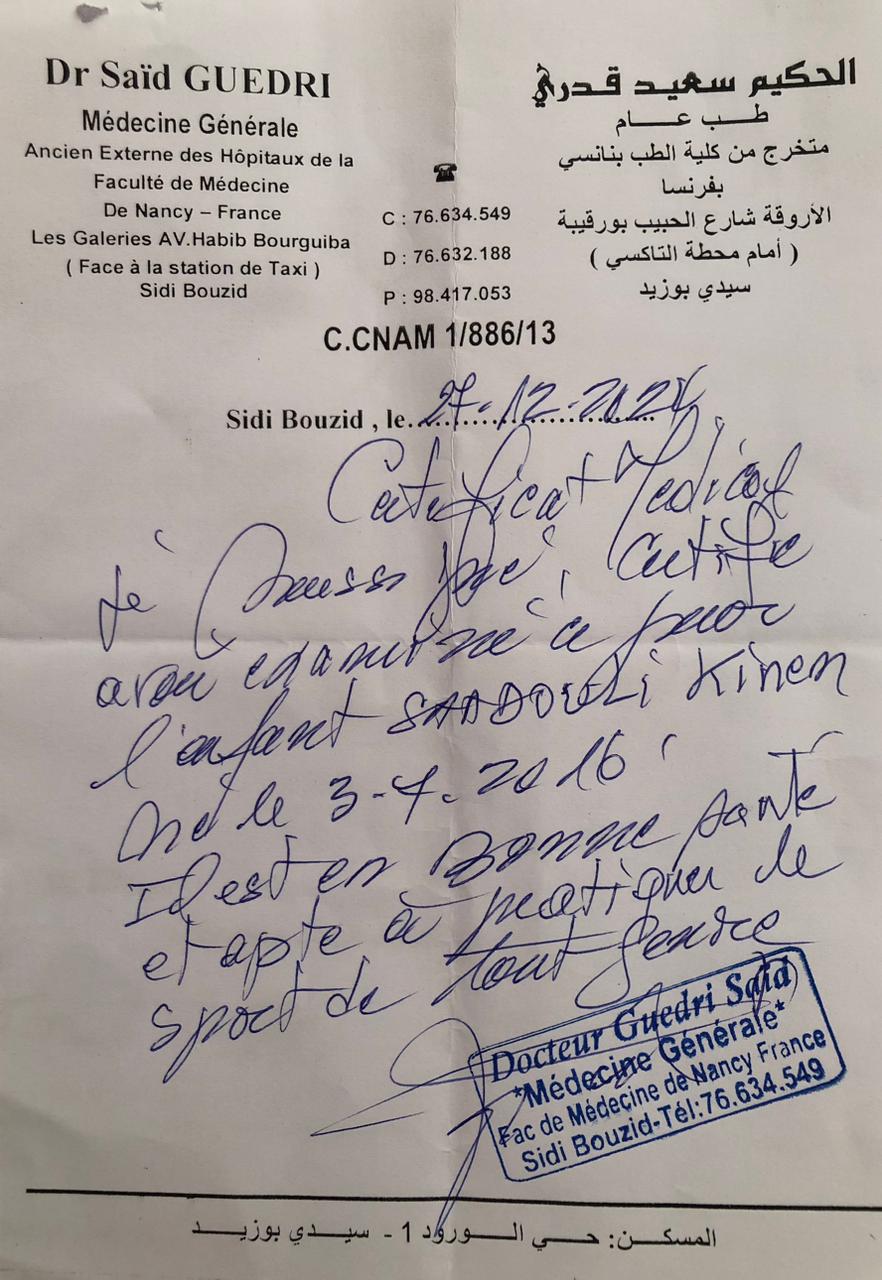 Dr Saïd GUEDRI
Médecine Générale
Ancien Externe des Hôpitaux de la
Faculté de Médecine
De Nancy – France
Les Galeries AV.Habib Bourguiba
( Face à la station de Taxi )
Sidi Bouzid
☎
C : 76.634.549
D : 76.632.188
P : 98.417.053
الحكيم سعيد قدري
طب عام
متخرج من كلية الطب بنانسي
بفرنسا
الأروقة شارع الحبيب بورقيبة
( أمام محطة التاكسي )
سيدي بوزيد
C.CNAM 1/886/13
Sidi Bouzid , le 27-12-2024
Certificat Medical
Je soussigné, certifie
avoir examiné ce jour
l'enfant SAADOULI Kinen
né le 3-4-2016
Il est en Bonne santé
et apte à pratiquer le
sport de tout genre
Docteur Guedri Saïd
*Médecine Générale*
Fac de Médecine de Nancy France
Sidi Bouzid-Tél:76.634.549
المسكن: حي الورود 1 - سيدي بوزيد